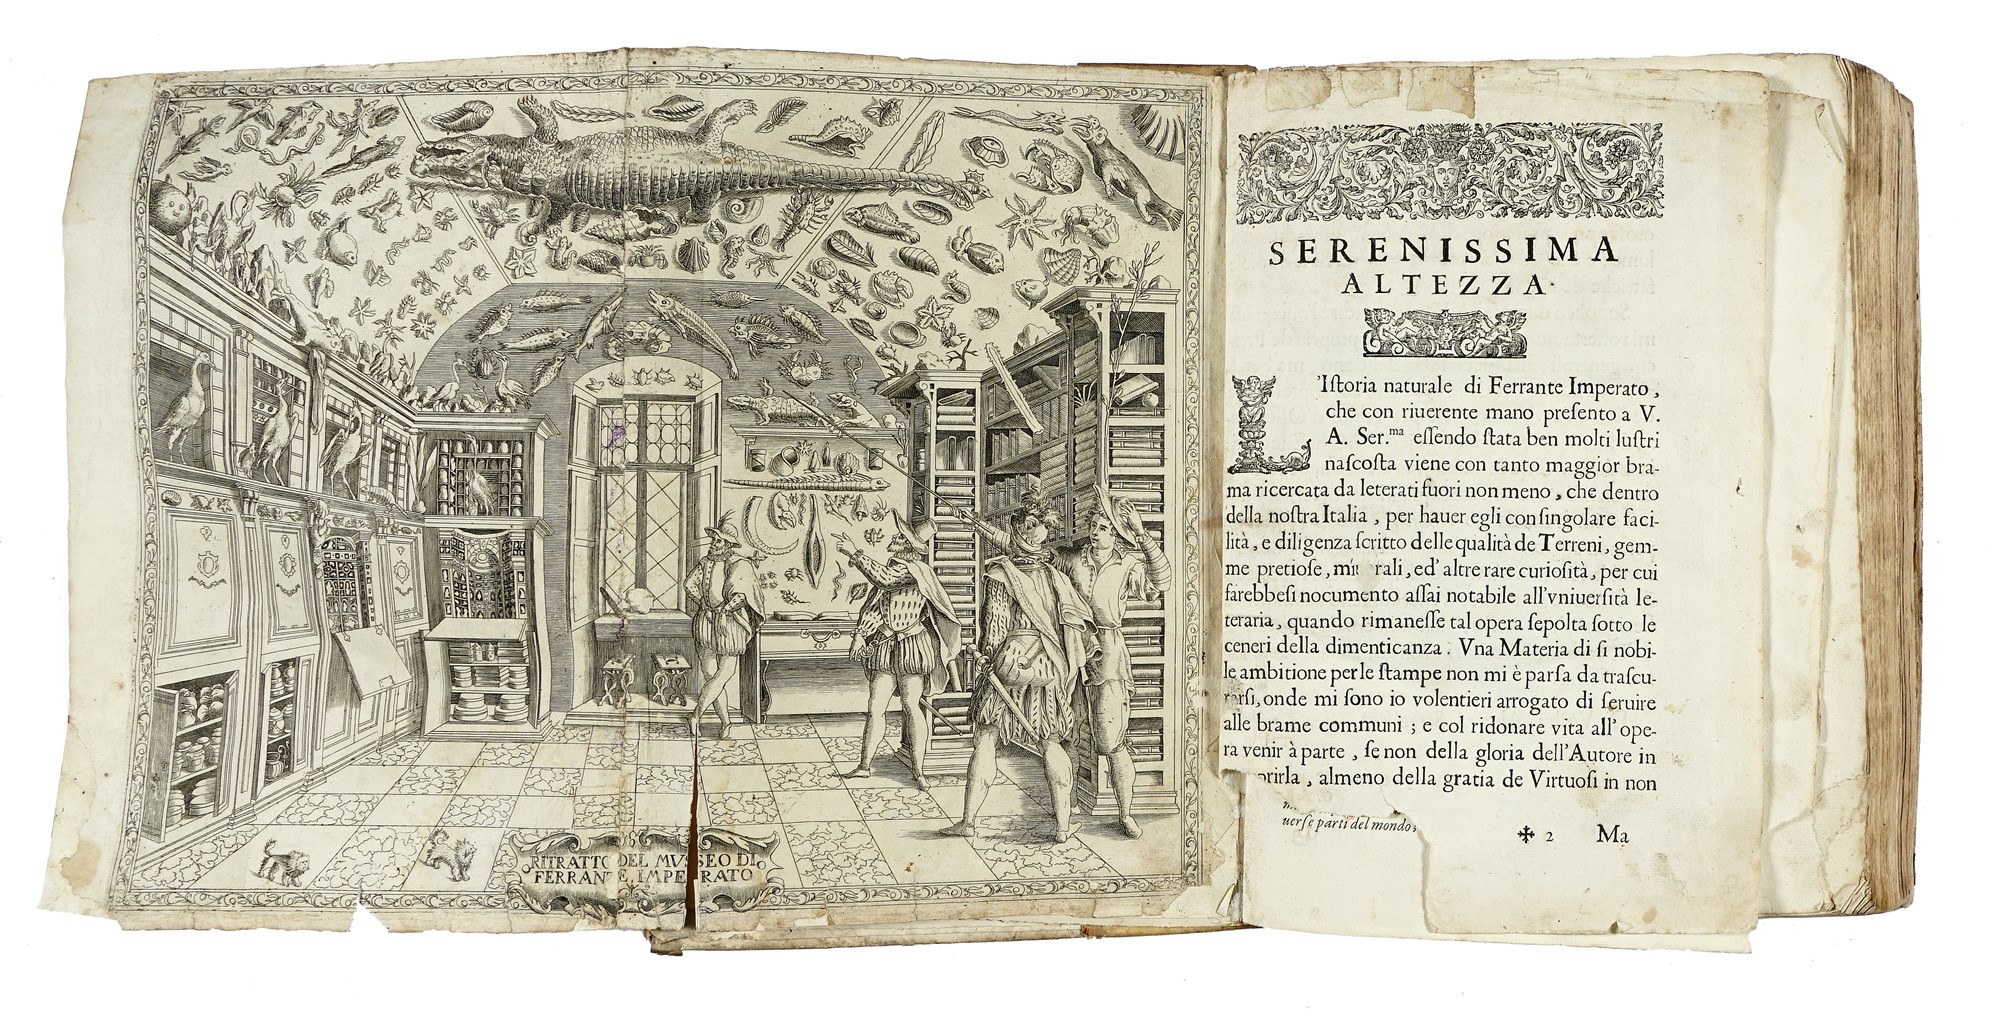 RITRATTO DEL MVSSEO DI
FERRANTE IMPERATO
SERENISSIMA
ALTEZZA.
L'Iſtoria naturale di Ferrante Imperato,
che con riuerente mano preſento a V.
A. Ser.ma eſſendo ſtata ben molti luſtri
naſcoſta viene con tanto maggior bra-
ma ricercata da leterati fuori non meno, che dentro
della noſtra Italia, per hauer egli con ſingolare faci-
lità, e diligenza ſcritto delle qualità de Terreni, gem-
me pretioſe, mi rali, ed' altre rare curioſità, per cui
farebbeſi nocumento aſſai notabile all'vniuerſità le-
teraria, quando rimaneſſe tal opera ſepolta ſotto le
ceneri della dimenticanza. Vna Materia di ſi nobi-
le ambitione per le ſtampe non mi è parſa da traſcu-
rarſi, onde mi ſono io volentieri arrogato di ſeruire
alle brame communi; e col ridonare vita all'ope-
ra venir à parte, ſe non della gloria dell'Autore in
prirla, almeno della gratia de Virtuoſi in non
uerſe parti del mondo;
✠ 2 Ma